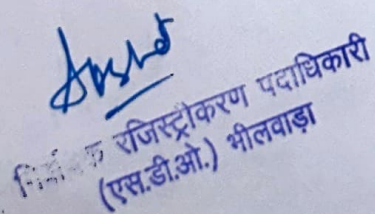 रजिस्ट्रीकरण पदाधिकारी
(एस.डी.ओ.) भीलवाड़ा